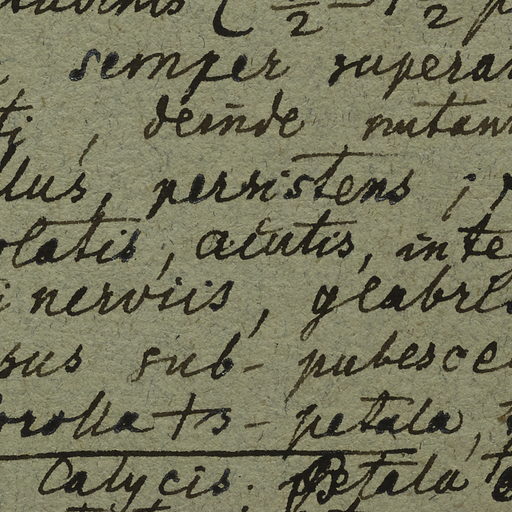 semper supera
, deinde nutan
llus, persistens ;
olatis, acutis, inte
inerviis, glabri
sus sub- pubesce
orolla +s- petala,
Calycis. Petala